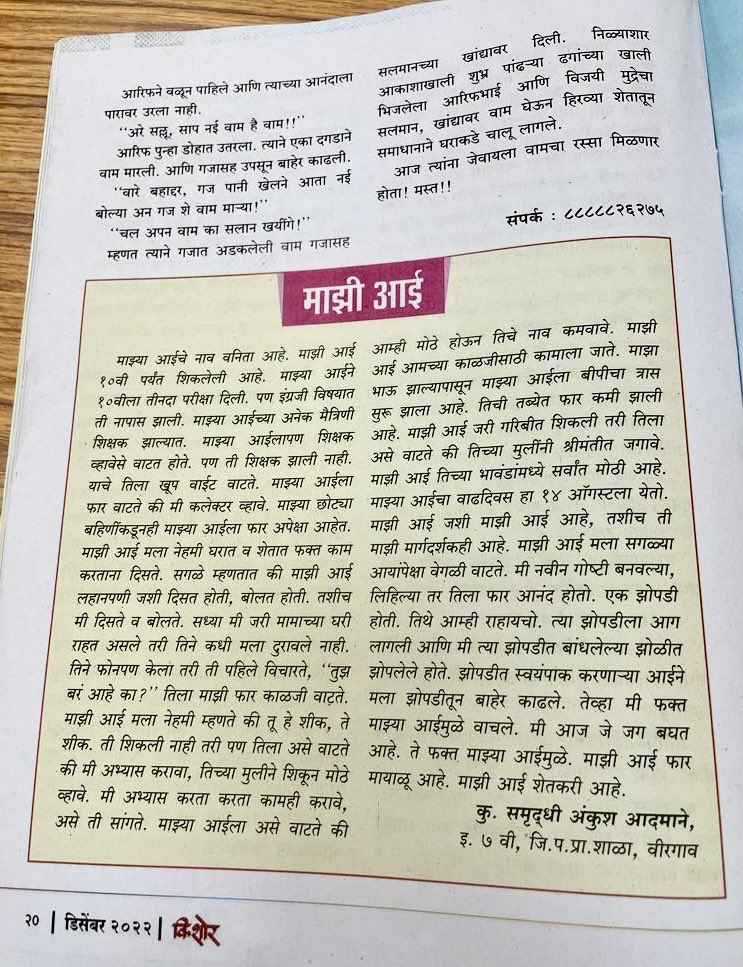 आरिफने वळून पाहिले आणि त्याच्या आनंदाला
पारावर उरला नाही.
“अरे सल्लू, साप नई वाम है वाम!!”
आरिफ पुन्हा डोहात उतरला. त्याने एका दगडाने
वाम मारली. आणि गजासह उपसून बाहेर काढली.
“वारे बहाद्दर, गज पानी खेलने आता नई
बोल्या अन गज शे वाम माऱ्या!”
“चल अपन वाम का सलान खयींगे!”
म्हणत त्याने गजात अडकलेली वाम गजासह
सलमानच्या खांद्यावर दिली. निळ्याशार
आकाशाखाली शुभ्र पांढऱ्या ढगांच्या खाली
भिजलेला आरिफभाई आणि विजयी मुद्रेचा
सलमान, खांद्यावर वाम घेऊन हिरव्या शेतातून
समाधानाने घराकडे चालू लागले.
आज त्यांना जेवायला वामचा रस्सा मिळणार
होता! मस्त!!
संपर्क : ८८८८८२६२७५
माझी आई
माझ्या आईचे नाव वनिता आहे. माझी आई
१०वी पर्यंत शिकलेली आहे. माझ्या आईने
१०वीला तीनदा परीक्षा दिली. पण इंग्रजी विषयात
ती नापास झाली. माझ्या आईच्या अनेक मैत्रिणी
शिक्षक झाल्यात. माझ्या आईलापण शिक्षक
व्हावेसे वाटत होते. पण ती शिक्षक झाली नाही.
याचे तिला खूप वाईट वाटते. माझ्या आईला
फार वाटते की मी कलेक्टर व्हावे. माझ्या छोट्या
बहिणींकडूनही माझ्या आईला फार अपेक्षा आहेत.
माझी आई मला नेहमी घरात व शेतात फक्त काम
करताना दिसते. सगळे म्हणतात की माझी आई
लहानपणी जशी दिसत होती, बोलत होती. तशीच
मी दिसते व बोलते. सध्या मी जरी मामाच्या घरी
राहत असले तरी तिने कधी मला दुरावले नाही.
तिने फोनपण केला तरी ती पहिले विचारते, “तुझ
बरं आहे का?” तिला माझी फार काळजी वाटते.
माझी आई मला नेहमी म्हणते की तू हे शीक, ते
शीक. ती शिकली नाही तरी पण तिला असे वाटते
की मी अभ्यास करावा, तिच्या मुलीने शिकून मोठे
व्हावे. मी अभ्यास करता करता कामही करावे,
असे ती सांगते. माझ्या आईला असे वाटते की
आम्ही मोठे होऊन तिचे नाव कमवावे. माझी
आई आमच्या काळजीसाठी कामाला जाते. माझा
भाऊ झाल्यापासून माझ्या आईला बीपीचा त्रास
सुरू झाला आहे. तिची तब्येत फार कमी झाली
आहे. माझी आई जरी गरिबीत शिकली तरी तिला
असे वाटते की तिच्या मुलींनी श्रीमंतीत जगावे.
माझी आई तिच्या भावंडांमध्ये सर्वांत मोठी आहे.
माझ्या आईचा वाढदिवस हा १४ ऑगस्टला येतो.
माझी आई जशी माझी आई आहे, तशीच ती
माझी मार्गदर्शकही आहे. माझी आई मला सगळ्या
आयांपेक्षा वेगळी वाटते. मी नवीन गोष्टी बनवल्या,
लिहिल्या तर तिला फार आनंद होतो. एक झोपडी
होती. तिथे आम्ही राहायचो. त्या झोपडीला आग
लागली आणि मी त्या झोपडीत बांधलेल्या झोळीत
झोपलेले होते. झोपडीत स्वयंपाक करणाऱ्या आईने
मला झोपडीतून बाहेर काढले. तेव्हा मी फक्त
माझ्या आईमुळे वाचले. मी आज जे जग बघत
आहे. ते फक्त माझ्या आईमुळे. माझी आई फार
मायाळू आहे. माझी आई शेतकरी आहे.
कु. समृद्धी अंकुश आदमाने,
इ. ७ वी, जि.प.प्रा.शाळा, वीरगाव
२० | डिसेंबर २०२२ | किशोर